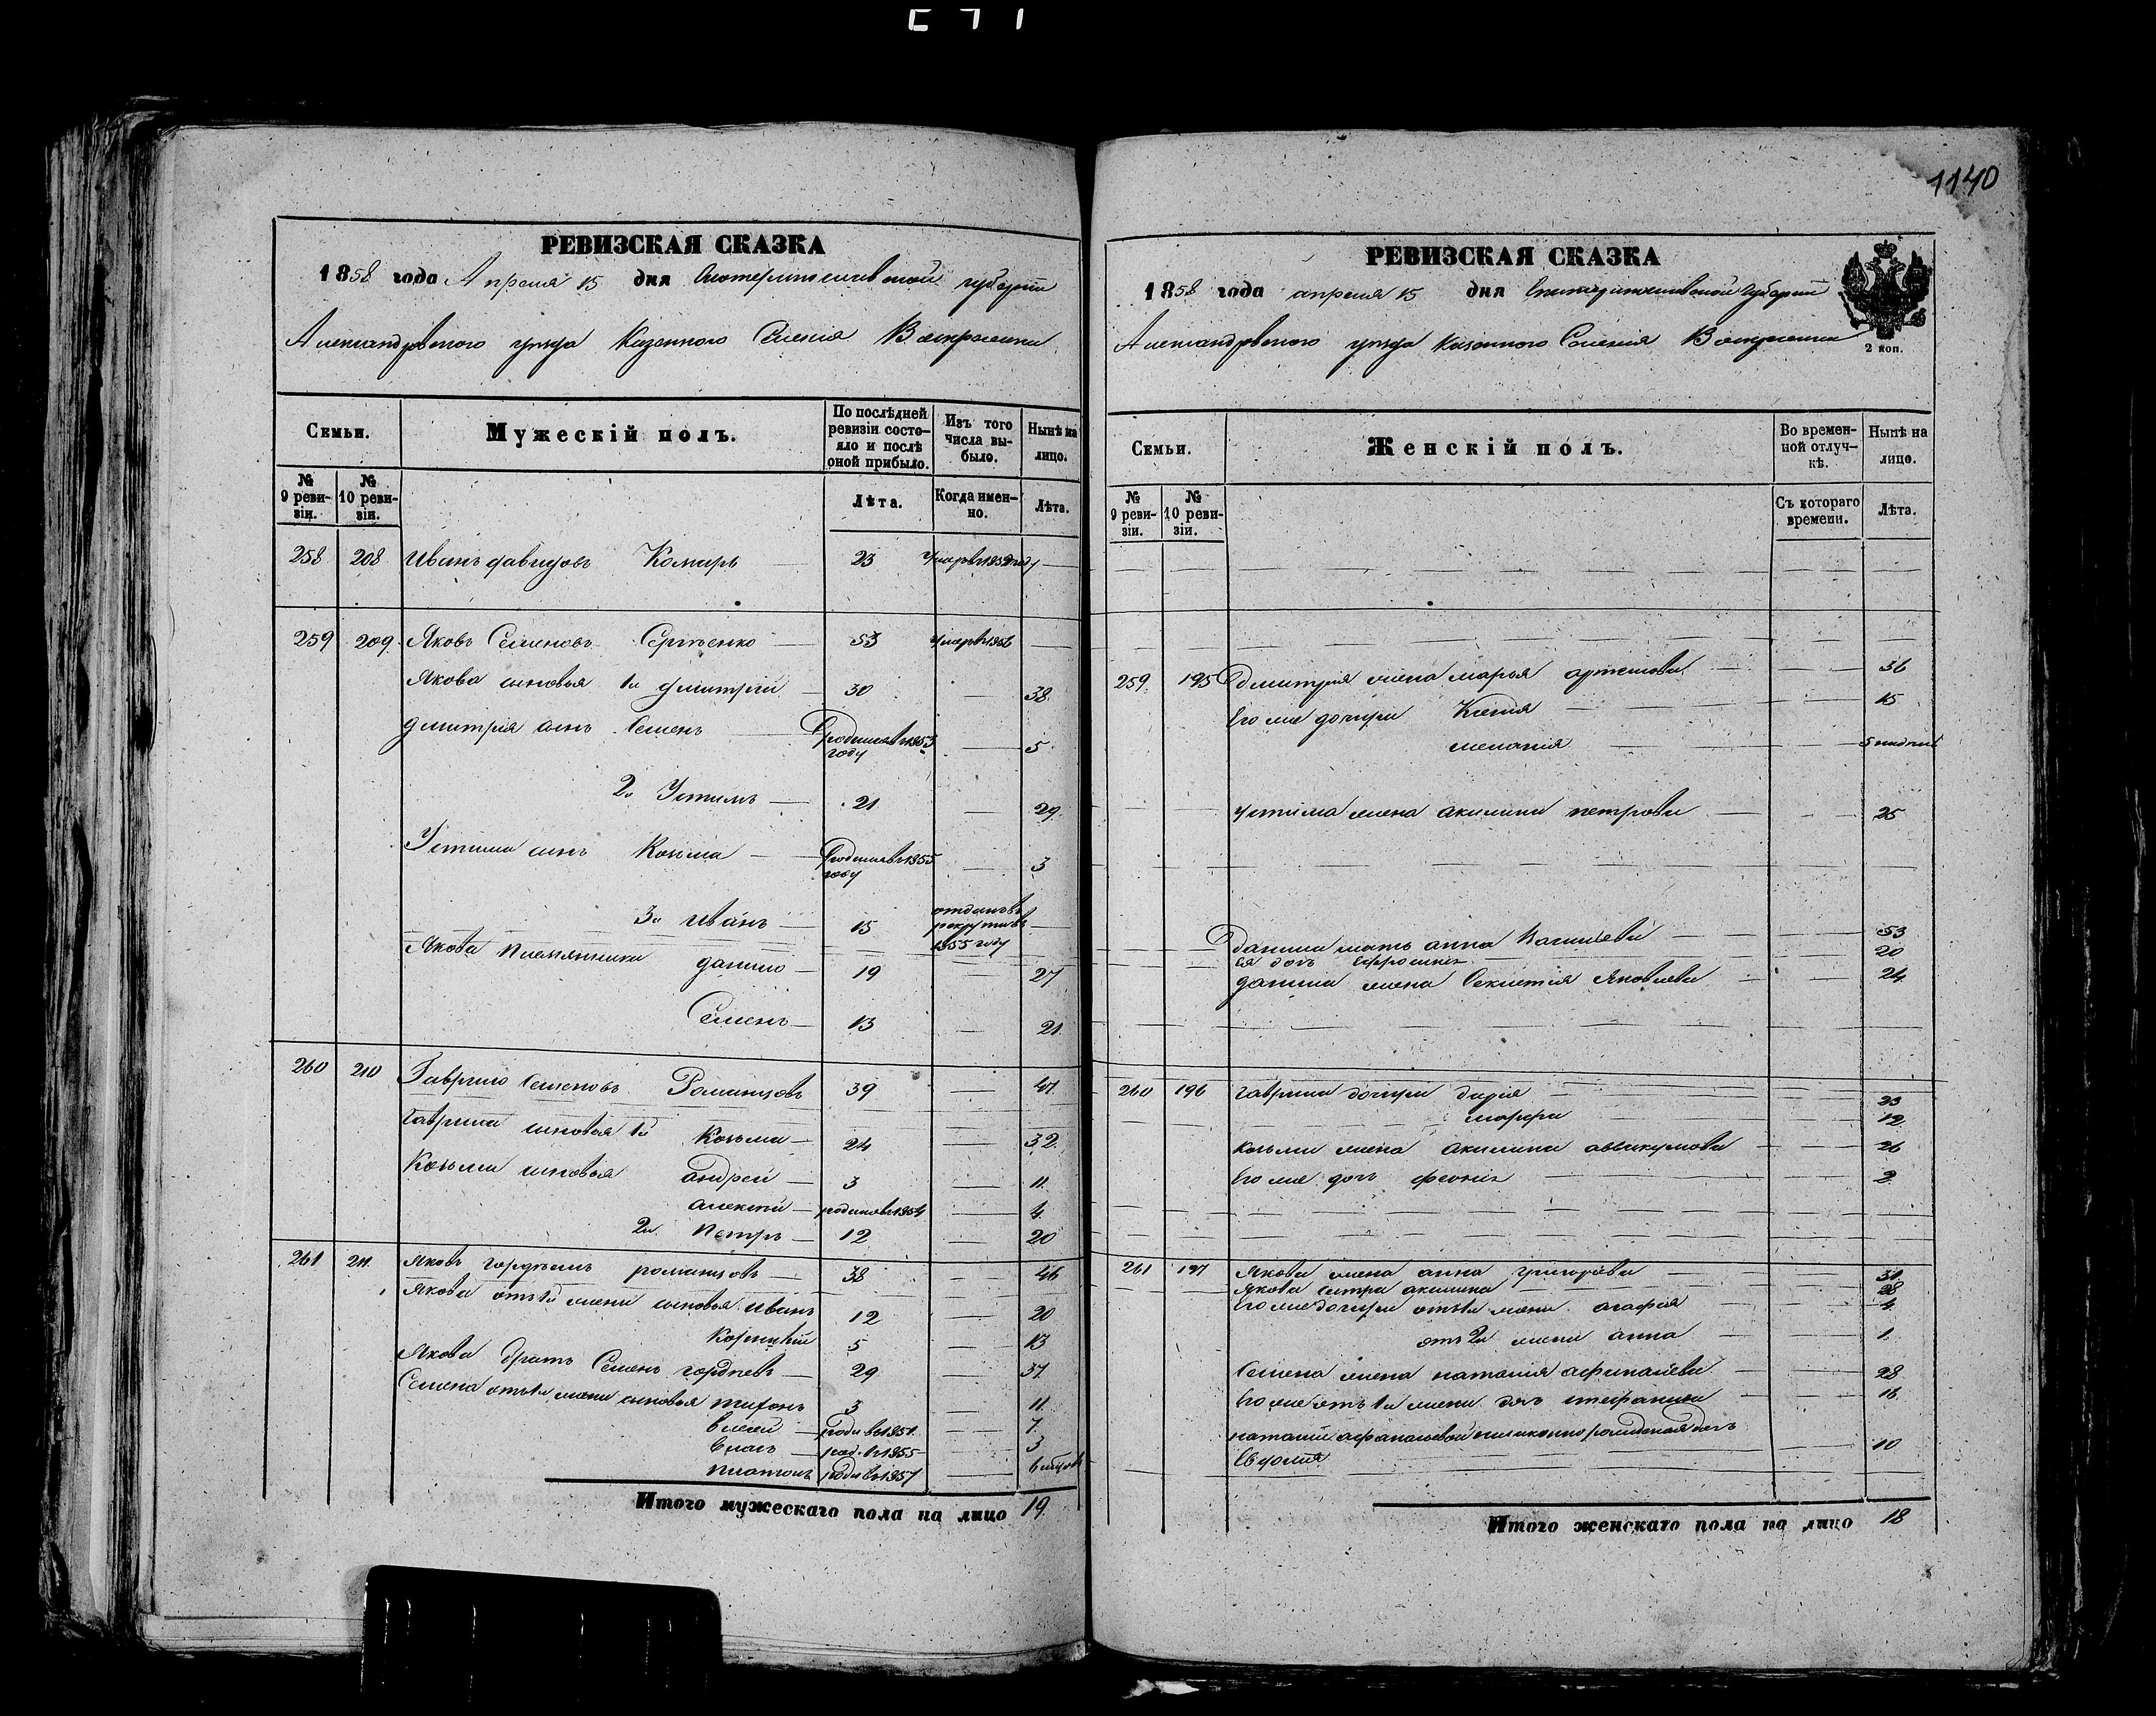 1140
РЕВИЗСКАЯ СКАЗКА
1858 года Апреля 15 дня Екатеринославской губернии
Александровского уезда Казенного Селения Воскресенки
Семьи.
Мужескій полъ.
По послѣдней ревизіи состояло и послѣ оной прибыло.
Изъ того числа выбыло.
Нынѣ на лицо.
№ 9 ревизіи.
№ 10 ревизіи.
Лѣта.
Когда именно.
Лѣта.
258 208 Иванъ Давидовъ Комаръ 23 умеръ в 1852 году
259 209 Яковъ Семеновъ Сергѣенко 53 умеръ в 1856
Якова сыновья 1й Дмитрий 30 38
Дмитрия сынъ Семенъ родился в 1853 году 5
2й Устимъ 21 29
Устима сынъ Козьма родился в 1855 году 3
3й Иванъ 15 отданъ в рекруты в 1855 году
Якова племянники Данило 19 27
Семенъ 13 21
260 210 Гаврило Семеновъ Романцовъ 39 47
Гаврила сыновья 1й Козьма 24 32
Козьмы сыновья Андрей 3 11
Алексей родился в 1854 4
2й Петръ 12 20
261 211 Яковъ Гордѣевъ Романцовъ 38 46
Якова отъ 1й жены сыновья Иванъ 12 20
Корнилий 5 13
Якова братъ Семенъ Гордѣевъ 29 37
Семена отъ 1й жены сыновья Тихонъ 3 11
родил. в 1851 7
род. в 1855 3
Платонъ родил. в 1857
Итого мужескаго пола на лицо 19
РЕВИЗСКАЯ СКАЗКА
1858 года апреля 15 дня Екатеринославской губернии
Александровского уезда Казенного Селения Воскресенки
2 коп.
Семьи.
Женскій полъ.
Во временной отлучкѣ.
Нынѣ на лицо.
№ 9 ревизіи.
№ 10 ревизіи.
Съ котораго времени.
Лѣта.
259 195 Дмитрия жена Марья Артемова 36
Его же дочери Ксения 15
Мелания 5
Устима жена Акилина Петрова 25
Данила мать Анна 53
Ея дочь Ефросиния 20
Данила жена Секлетия Яковлева 24
260 196 Гаврила дочери Дария 23
Марфа 12
Козьмы жена Акилина Аввакумова 26
Его же дочь Феония 2
261 197 Якова жена Анна Григорьева 31
Якова сестра Акилина 28
Его же дочери отъ 1й жены Агафия 4
отъ 2й жены Анна 1
Семена жена Наталия Афанасиева 28
Его же отъ 1й жены дочь Стефанида 16
Наталии Афанасиевой незаконнорожденная дочь
Евдокия 10
Итого женскаго пола на лицо 18